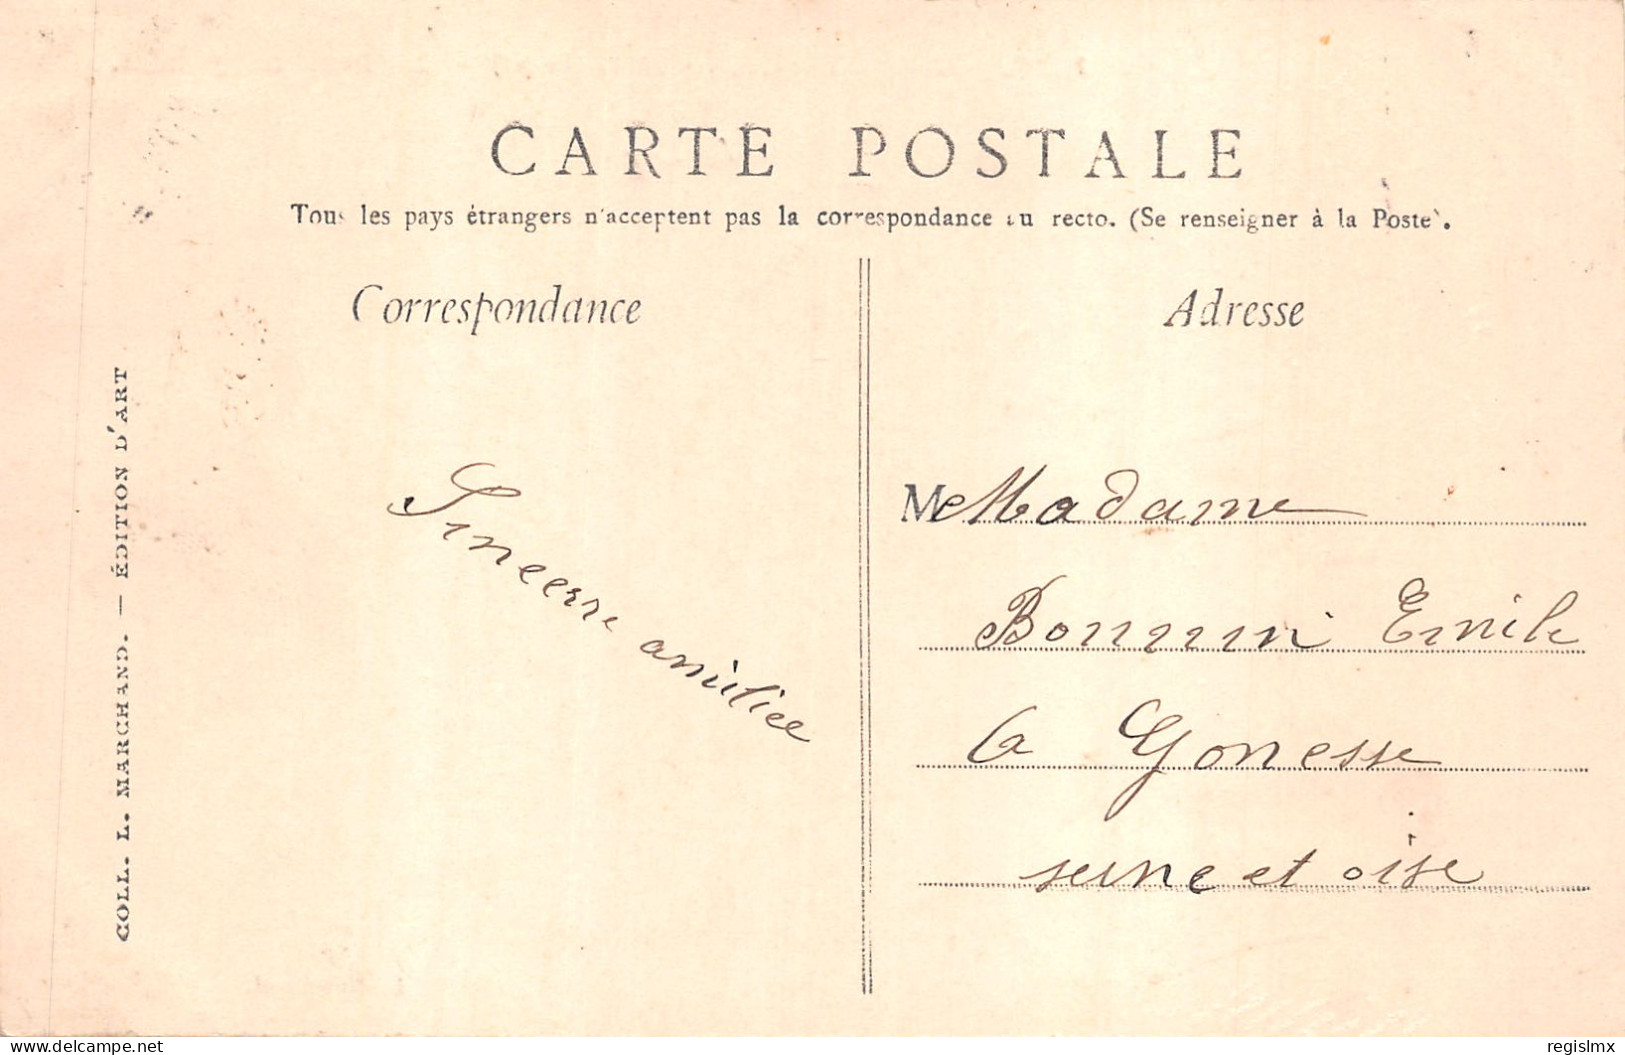 CARTE POSTALE
Tous les pays étrangers n'acceptent pas la correspondance au recto. (Se renseigner à la Poste).
Correspondance
Adresse
COLL. L. MARCHAND. — ÉDITION D'ART
Sincerre
amitiee
M Madame
Emile
a Gonesse
seine et oise
www.delcampe.net
regislmx